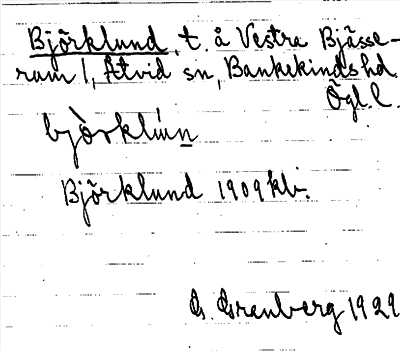 Björklund, t. å Vestra Bjässe-
rum 1, Åtvid sn, Bankekinds hd
Ögl. l.
bjòrklún
Björklund 1909 kb.
G. Granberg 1929